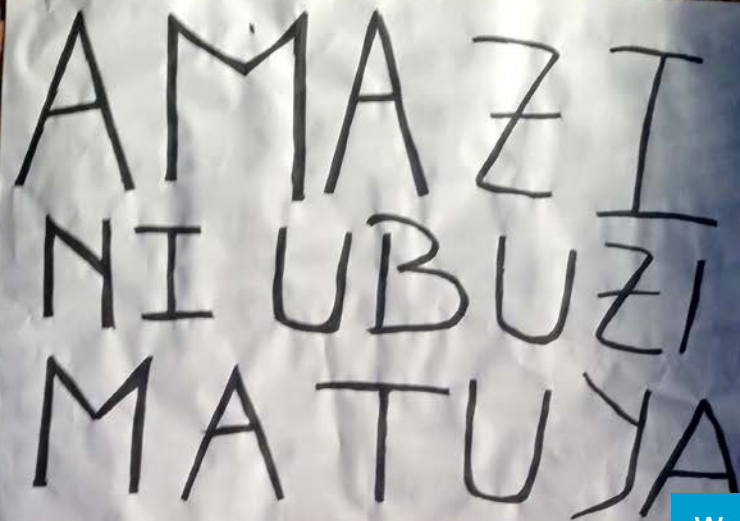 AMAZI
NI UBUZI
MATUYA
W